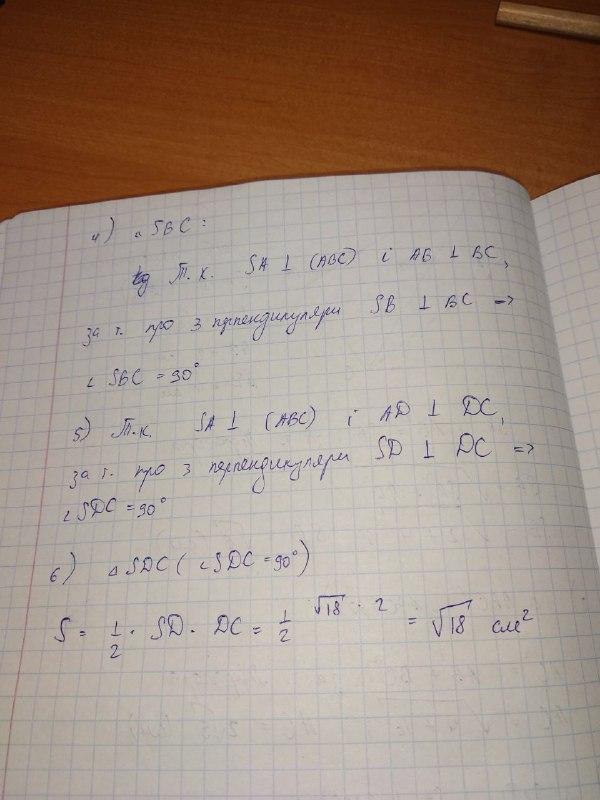 4) △ SBC:
Т.к. SA ⊥ (ABC) і AB ⊥ BC,
за т. про 3 перпендикуляри SB ⊥ BC =>
∠ SBC = 90°
5) Т.к. SA ⊥ (ABC) і AD ⊥ DC,
за т. про 3 перпендикуляри SD ⊥ DC =>
∠ SDC = 90°
6) △ SDC (∠ SDC = 90°)
S = 1/2 · SD · DC = 1/2 √18 · 2 = √18 см²